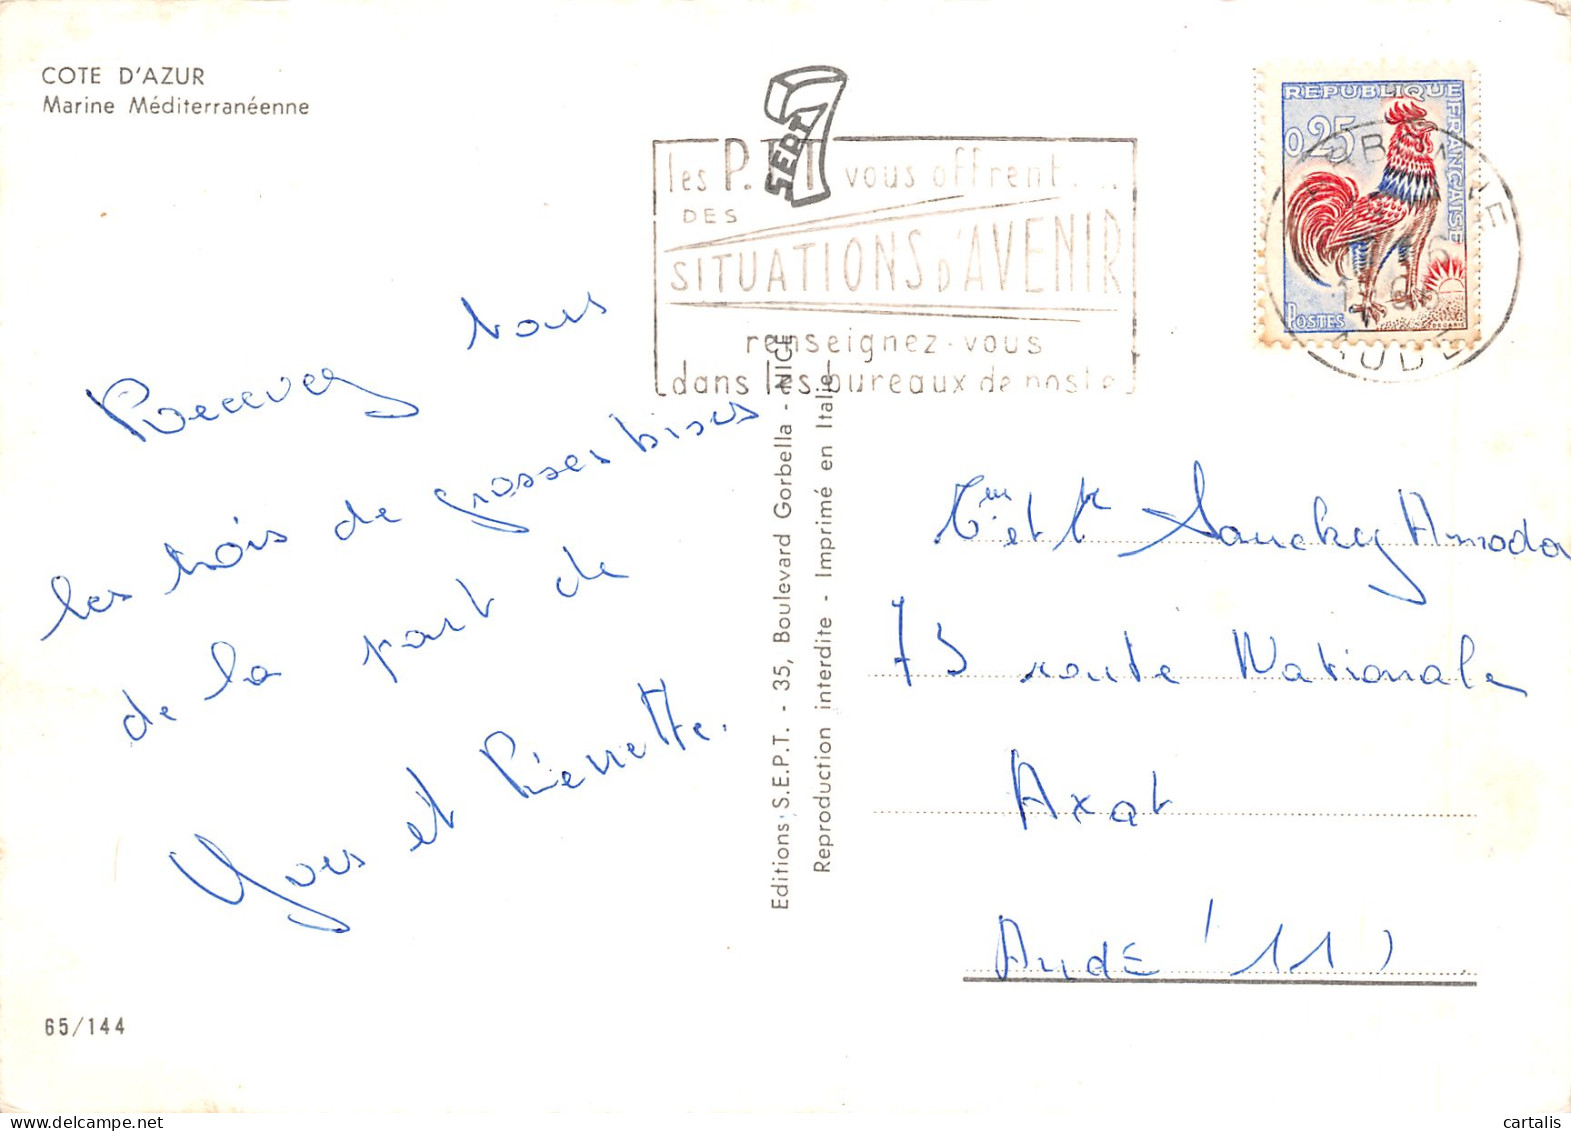 COTE D'AZUR
Marine Méditerranéenne
SEPT
les P.T.T vous offrent....
DES
SITUATIONS D'AVENIR
renseignez-vous
dans les bureaux de poste
REPUBLIQUE
FRANÇAISE
0,25
POSTES
AUDE
Recevez tous
les trois de grosses bises
de la part de
Yves et Pierrette.
Editions S.E.P.T. - 35, Boulevard Gorbella - NICE
Reproduction interdite - Imprimé en Italie
et Sanchez Amoda
73 route Nationale
Axat
Aude (11)
65/144
cartalis